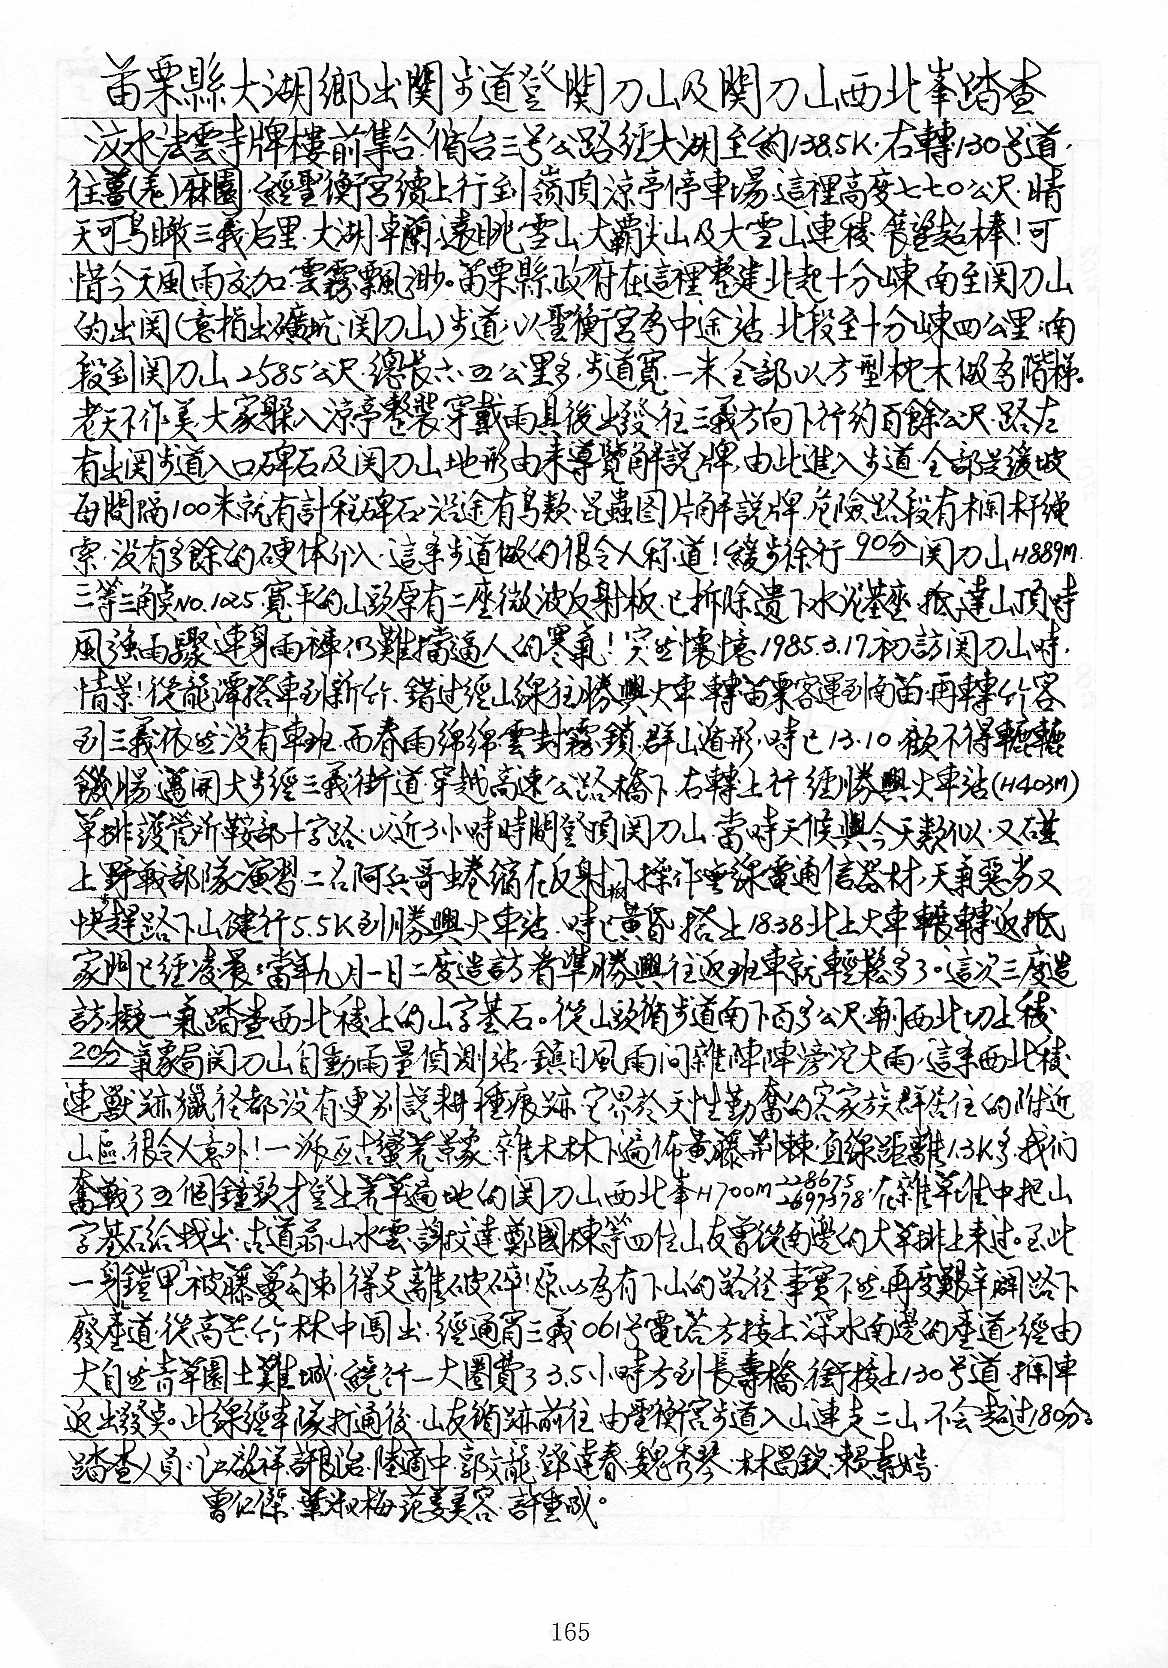 苗栗縣大湖鄉出関步道登関刀山及関刀山西北峯踏查
汶水法雲寺牌樓前集合.循台三号公路經大湖至約138.5K.右轉130号道.
往薑(羌)麻園.經聖衡宮續上行到嶺頂涼亭停車場.這裡高度七七0公尺.晴
天可鳥瞰三義后里.大湖卓蘭.遠眺雪山.大霸尖山及大雪山連稜.展望超棒!可
惜今天風雨交加.雲霧飄渺。苗栗縣政府在這裡整建北起十分崠南至関刀山
的出関(意指出礦坑.関刀山)步道.以聖衡宮為中途站.北段至十分崠四公里.南
段到関刀山2585公尺.總長六.五公里多.步道寬一米全部以方型枕木做為階梯。
老天不作美.大家躲入涼亭整裝穿戴雨具後出發.往三義方向下行約百餘公尺.路左
有出関步道入口碑石及関刀山地形由來導覽解說牌.由此進入步道.全部是緩坡
每間隔100米就有計程碑石.沿途有鳥類.昆蟲图片解說牌.危險路段有欄杆繩
索.沒有多餘的硬体介入.這条步道做的很令人称道!緩步徐行90分関刀山H889M.
三等三角点NO.1025.寬平的山頭原有二座微波反射板.已拆除遺下水泥基座.抵達山頂時
風強雨驟連身雨褲仍難擋逼人的寒氣!突然懷憶1985.3.17.初訪関刀山時.
情景!從龍潭搭車到新竹.錯过經山線往勝興火車.轉苗栗客運到南苗.再轉竹客
到三義依然沒有車班.而春雨綿綿.雲封霧鎖.群山遁形.時已13.10.顧不得轆轆
饑腸.邁開大步經三義街道.穿越高速公路橋下.右轉上行.經勝興火車站(H403M)
草排護管所鞍部十字路.以近3小時時間登頂関刀山.當時天候與今天類似.又碰
上野戰部隊演習.二名阿兵哥蜷縮在反射板下操作無線電通信器材.天氣惡劣又
快趕路下山健行5.5K到勝興火車站.時已黃昏.搭上18.38北上火車輾轉返抵
家門已經凌晨.當年九月一日二度造訪看準勝興往返班車就輕鬆多了。這次三度造
訪.擬一氣踏查西北稜上的山字基石。從山頭循步道南下百多公尺.朝西北切上稜.
20分氣象局関刀山自動雨量偵測站.鎮日風雨间雜陣陣滂沱大雨.這条西北稜
連獸跡獵徑都沒有更別說耕種痕跡.它界於天性勤奮的客家族群居住的附近
山區.很令人意外!一派亙古蠻荒景象.雜木林下遍佈黃藤荊棘.直線距離1.3K多.我们
奮戰了五個鐘頭才登上芒草遍地的関刀山西北峯H700M 228675 2697378.在雜草堆中把山
字基石給找出.古道翁.山水雲.謝技達.鄭國棟等四位山友曾從南邊的大草排上來过。至此
一身鎧甲被藤蔓勾刺得支離破碎!原以為有下山的路徑.事實不然.再度艱辛闢路下
廢產道.從高芒竹林中闖出.經通霄三義061号電塔方接上深水南邊的產道.經由
大自然青草園土雞城.繞行一大圈費了3.5小時方到長壽橋.銜接上130号道.攔車
返出發点。此線經本隊打通後.山友循跡前往.由聖衡宮步道入山連走二山.不会超过180分。
踏查人員:江啟祥.許良治.陸適中.郭文龍.鄧達春.魏秀琴.林昌欽.賴素嫣.
曾仁傑.葉淑梅.范姜美容.許重成。
165